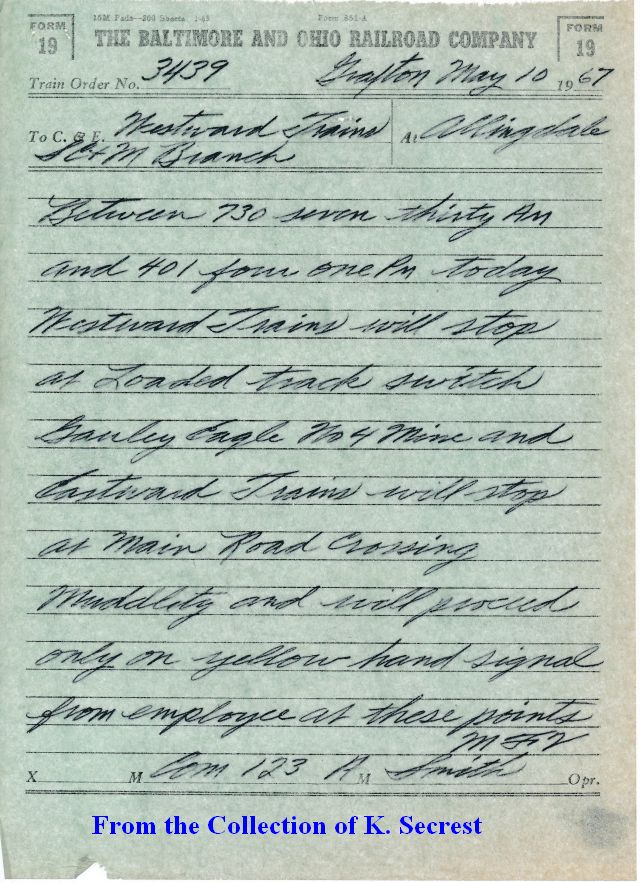 15M Pads—200 Sheets 1-63 Form 851-A
FORM 19 THE BALTIMORE AND OHIO RAILROAD COMPANY FORM 19
Train Order No. 3439 Grafton May 10 1967
To C. & E. Westward Trains At Allingdale
SC&M Branch
Between 730 seven thirty Am
and 401 four one Pm today
Westward Trains will stop
at Loaded track switch
Gauley Eagle No 4 Mine and
Eastward Trains will stop
at Main Road Crossing
Muddlety and will proceed
only on yellow hand signal
from employee at these points
X M Com 123 A M Smith Opr.
From the Collection of K. Secrest